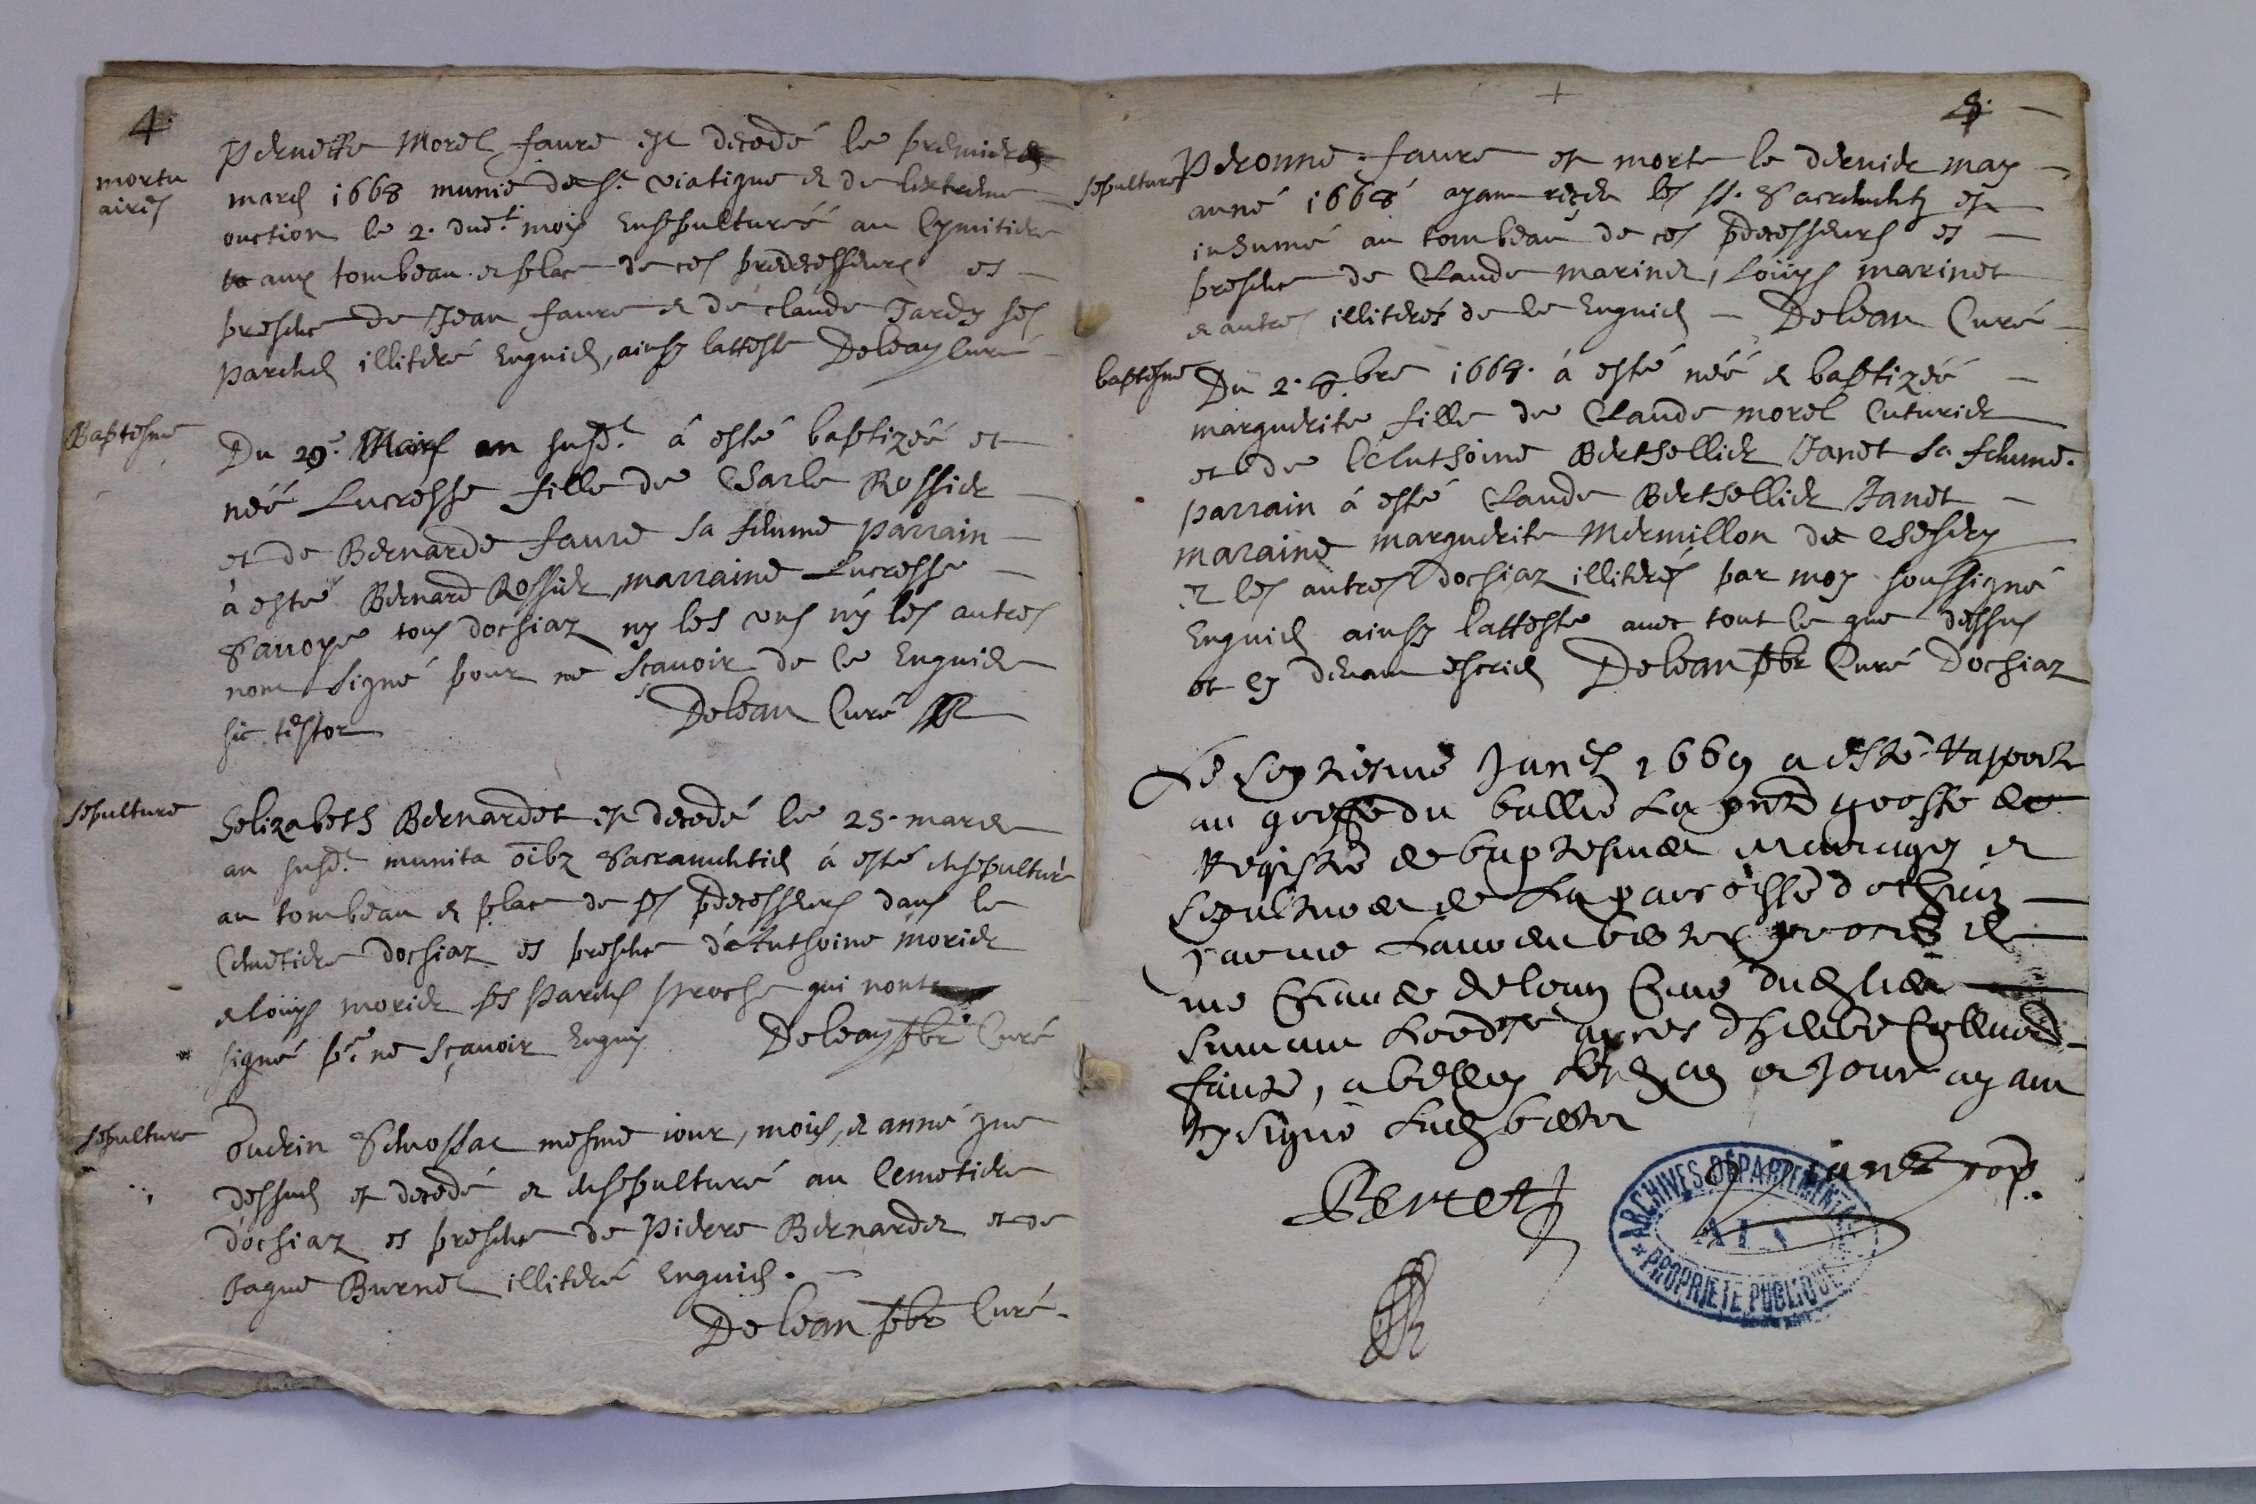 4.
mortu
aires
Pernette Morel faure est decedé le premier
mars 1668 munie de st. viatique et de lextreme
onction le 2. dudt. mois ensepulturéé au Cymitiere
aux tombeau et place de ces predecesseurs es
presence de Jean faure et de claude Tardy ses
parens illiteré enquis, ainsy latteste Delean Curé
Baptesme
Du 29e. Mars an susdt. à esté baptizéé et
néé Lucresse fille de Charle Rossier
et de Bernarde faure sa femme parrain
à esté Bernard Rossier, marraine Lucresse
Sauoye tous dochiaz ny les uns ny les autres
nont signé pour ne sçauoir de ce enquis
sic testor Delean Curé
sepulture
helizabeth Bernardet est decedé le 25. mars
an susdt. munita oibz sacramentis à esté ensepulturé
au tombeau et place de ses pdecesseurs dans le
Cemetiere dochiaz es presence d'Anthoine morier
et loüys morier ses parens proche qui nont
signé pr. ne sçauoir enquis Delean pbr Curé
sepulture
Oudrin mesme iour, mois, et anné que
dessus est decedé et ensepulturé au Cemetiere
dochiaz es presence de Pierre Bernardet et de
Jaque Burnet illiteré enquis.
Delean pbr Curé
5.
sepulture
Peronne faure est morte le dernier may
anné 1668 ayant receu les ss. Sacrements est
inhumé au tombeau de ces pdecesseurs es
presence de Claude marinet, Loüys marinet
et autres illiterés de ce enquis Delean Curé
baptesme
Du 2. 8.bre 1668. à esté néé et baptizéé
marguerite fille de Claude morel Cuturier
et de Anthoine Berthellier Janet sa femme.
parrain à esté Claude Berthellier Janet
maraine marguerite Mermillon de Chesery
et les autres dochiaz illiterés par moy soussigné
enquis ainsy latteste auec tout ce que dessus
et cy deuant escris Delean pbr Curé Dochiaz
Le septiesme Janer 1669 a esté rapporté
au greffe du balliage la pnte grosse de
registre de baptesmes mariages et
sepultures de la parroisse dochiaz
par me
me Claude delean Curé dudt lieu
suiuant lordce apres
faicte, a belley les an et jour ayant
signé
Bertet
ARCHIVES DÉPARTEMENTALES
AIN
PROPRIETE PUBLIQUE